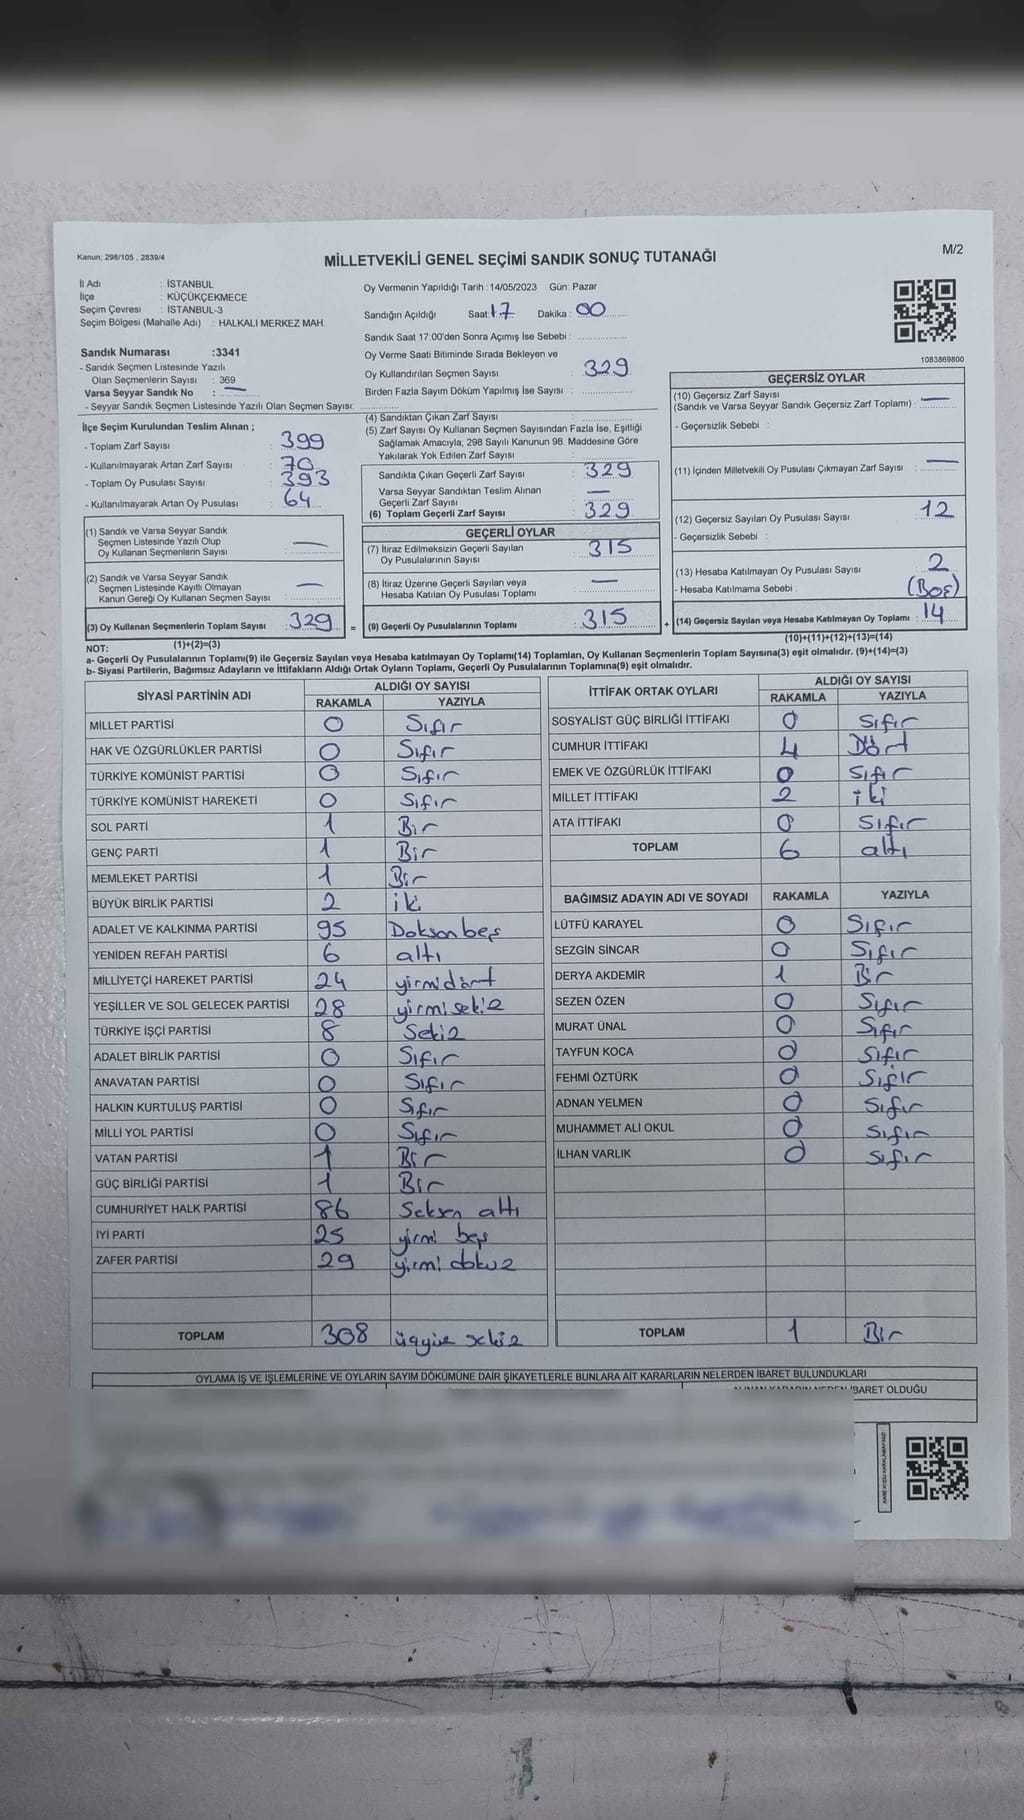 Kanun; 298/105 , 2839/4
MİLLETVEKİLİ GENEL SEÇİMİ SANDIK SONUÇ TUTANAĞI
M/2
İl Adı : İSTANBUL
İlçe : KÜÇÜKÇEKMECE
Seçim Çevresi : İSTANBUL-3
Seçim Bölgesi (Mahalle Adı) : HALKALI MERKEZ MAH.
Sandık Numarası :3341
- Sandık Seçmen Listesinde Yazılı
Olan Seçmenlerin Sayısı : 369
Varsa Seyyar Sandık No : —
- Seyyar Sandık Seçmen Listesinde Yazılı Olan Seçmen Sayısı:
Oy Vermenin Yapıldığı Tarih : 14/05/2023 Gün: Pazar
Sandığın Açıldığı Saat: 17 Dakika : 00
Sandık Saat 17:00'den Sonra Açımış İse Sebebi :
Oy Verme Saati Bitiminde Sırada Bekleyen ve
Oy Kullandırılan Seçmen Sayısı : 329
Birden Fazla Sayım Döküm Yapılmış İse Sayısı :
1083869800
İlçe Seçim Kurulundan Teslim Alınan ;
- Toplam Zarf Sayısı : 399
- Kullanılmayarak Artan Zarf Sayısı : 70
- Toplam Oy Pusulası Sayısı : 393
- Kullanılmayarak Artan Oy Pusulası : 64
(1) Sandık ve Varsa Seyyar Sandık
Seçmen Listesinde Yazılı Olup
Oy Kullanan Seçmenlerin Sayısı : —
(2) Sandık ve Varsa Seyyar Sandık
Seçmen Listesinde Kayıtlı Olmayan
Kanun Gereği Oy Kullanan Seçmen Sayısı : —
(3) Oy Kullanan Seçmenlerin Toplam Sayısı : 329 =
(1)+(2)=(3)
(4) Sandıktan Çıkan Zarf Sayısı :
(5) Zarf Sayısı Oy Kullanan Seçmen Sayısından Fazla İse, Eşitliği
Sağlamak Amacıyla; 298 Sayılı Kanunun 98. Maddesine Göre
Yakılarak Yok Edilen Zarf Sayısı :
Sandıkta Çıkan Geçerli Zarf Sayısı : 329
Varsa Seyyar Sandıktan Teslim Alınan
Geçerli Zarf Sayısı : —
(6) Toplam Geçerli Zarf Sayısı : 329
GEÇERLİ OYLAR
(7) İtiraz Edilmeksizin Geçerli Sayılan
Oy Pusulalarının Sayısı : 315
(8) İtiraz Üzerine Geçerli Sayılan veya
Hesaba Katılan Oy Pusulası Toplamı : —
(9) Geçerli Oy Pusulalarının Toplamı : 315 +
GEÇERSİZ OYLAR
(10) Geçersiz Zarf Sayısı
(Sandık ve Varsa Seyyar Sandık Geçersiz Zarf Toplamı) : —
- Geçersizlik Sebebi :
(11) İçinden Milletvekili Oy Pusulası Çıkmayan Zarf Sayısı : —
(12) Geçersiz Sayılan Oy Pusulası Sayısı : 12
- Geçersizlik Sebebi :
(13) Hesaba Katılmayan Oy Pusulası Sayısı : 2
- Hesaba Katılmama Sebebi : (Boş)
(14) Geçersiz Sayılan veya Hesaba Katılmayan Oy Toplamı : 14
(10)+(11)+(12)+(13)=(14)
NOT:
a- Geçerli Oy Pusulalarının Toplamı(9) ile Geçersiz Sayılan veya Hesaba katılmayan Oy Toplamı(14) Toplamları, Oy Kullanan Seçmenlerin Toplam Sayısına(3) eşit olmalıdır. (9)+(14)=(3)
b- Siyasi Partilerin, Bağımsız Adayların ve İttifakların Aldığı Ortak Oyların Toplamı, Geçerli Oy Pusulalarının Toplamına(9) eşit olmalıdır.
SİYASİ PARTİNİN ADI ALDIĞI OY SAYISI
RAKAMLA YAZIYLA
MİLLET PARTİSİ 0 Sıfır
HAK VE ÖZGÜRLÜKLER PARTİSİ 0 Sıfır
TÜRKİYE KOMÜNİST PARTİSİ 0 Sıfır
TÜRKİYE KOMÜNİST HAREKETİ 0 Sıfır
SOL PARTİ 1 Bir
GENÇ PARTİ 1 Bir
MEMLEKET PARTİSİ 1 Bir
BÜYÜK BİRLİK PARTİSİ 2 iki
ADALET VE KALKINMA PARTİSİ 95 Doksan beş
YENİDEN REFAH PARTİSİ 6 altı
MİLLİYETÇİ HAREKET PARTİSİ 24 yirmidört
YEŞİLLER VE SOL GELECEK PARTİSİ 28 yirmisekiz
TÜRKİYE İŞÇİ PARTİSİ 8 Sekiz
ADALET BİRLİK PARTİSİ 0 Sıfır
ANAVATAN PARTİSİ 0 Sıfır
HALKIN KURTULUŞ PARTİSİ 0 Sıfır
MİLLİ YOL PARTİSİ 0 Sıfır
VATAN PARTİSİ 1 Bir
GÜÇ BİRLİĞİ PARTİSİ 1 Bir
CUMHURİYET HALK PARTİSİ 86 Seksen altı
İYİ PARTİ 25 yirmi beş
ZAFER PARTİSİ 29 yirmi dokuz
TOPLAM 308 üçyüz sekiz
İTTİFAK ORTAK OYLARI ALDIĞI OY SAYISI
RAKAMLA YAZIYLA
SOSYALİST GÜÇ BİRLİĞİ İTTİFAKI 0 Sıfır
CUMHUR İTTİFAKI 4 Dört
EMEK VE ÖZGÜRLÜK İTTİFAKI 0 Sıfır
MİLLET İTTİFAKI 2 iki
ATA İTTİFAKI 0 Sıfır
TOPLAM 6 altı
BAĞIMSIZ ADAYIN ADI VE SOYADI RAKAMLA YAZIYLA
LÜTFÜ KARAYEL 0 Sıfır
SEZGİN SİNCAR 0 Sıfır
DERYA AKDEMİR 1 Bir
SEZEN ÖZEN 0 Sıfır
MURAT ÜNAL 0 Sıfır
TAYFUN KOCA 0 Sıfır
FEHMİ ÖZTÜRK 0 Sıfır
ADNAN YELMEN 0 Sıfır
MUHAMMET ALİ OKUL 0 Sıfır
İLHAN VARLIK 0 Sıfır
TOPLAM 1 Bir
OYLAMA İŞ VE İŞLEMLERİNE VE OYLARIN SAYIM DÖKÜMÜNE DAİR ŞİKAYETLERLE BUNLARA AİT KARARLARIN NELERDEN İBARET BULUNDUKLARI
İBARET OLDUĞU